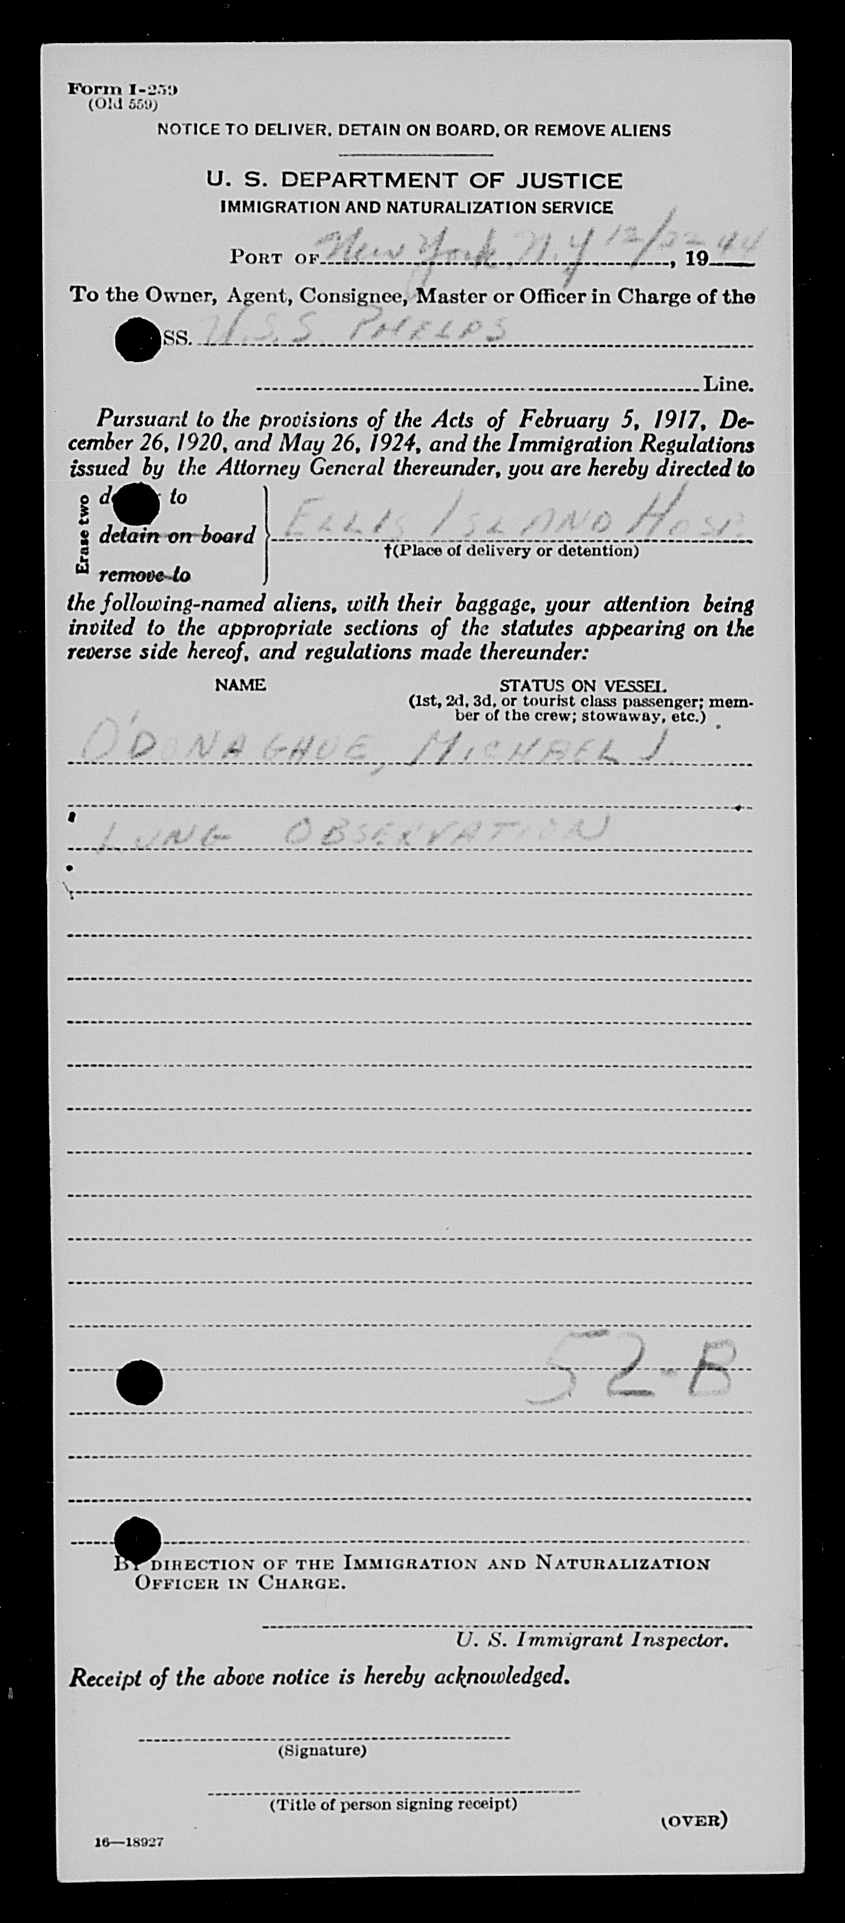 Form I-259
(Old 559)
NOTICE TO DELIVER, DETAIN ON BOARD, OR REMOVE ALIENS
U. S. DEPARTMENT OF JUSTICE
IMMIGRATION AND NATURALIZATION SERVICE
PORT OF New York, N.Y 12/22 44, 19
To the Owner, Agent, Consignee, Master or Officer in Charge of the
SS. U.S.S PHELPS
Line.
Pursuant to the provisions of the Acts of February 5, 1917, De-
cember 26, 1920, and May 26, 1924, and the Immigration Regulations
issued by the Attorney General thereunder, you are hereby directed to
Erase two
to
detain on board
remove to
ELLIS ISLAND HOSP.
†(Place of delivery or detention)
the following-named aliens, with their baggage, your attention being
invited to the appropriate sections of the statutes appearing on the
reverse side hereof, and regulations made thereunder:
NAME STATUS ON VESSEL
(1st, 2d, 3d, or tourist class passenger; mem-
ber of the crew; stowaway, etc.)
O'DONAGHUE, MICHAEL J.
LUNG OBSERVATION
52-B
BY DIRECTION OF THE IMMIGRATION AND NATURALIZATION
OFFICER IN CHARGE.
U. S. Immigrant Inspector.
Receipt of the above notice is hereby acknowledged.
(Signature)
(Title of person signing receipt)
(OVER)
16—18927